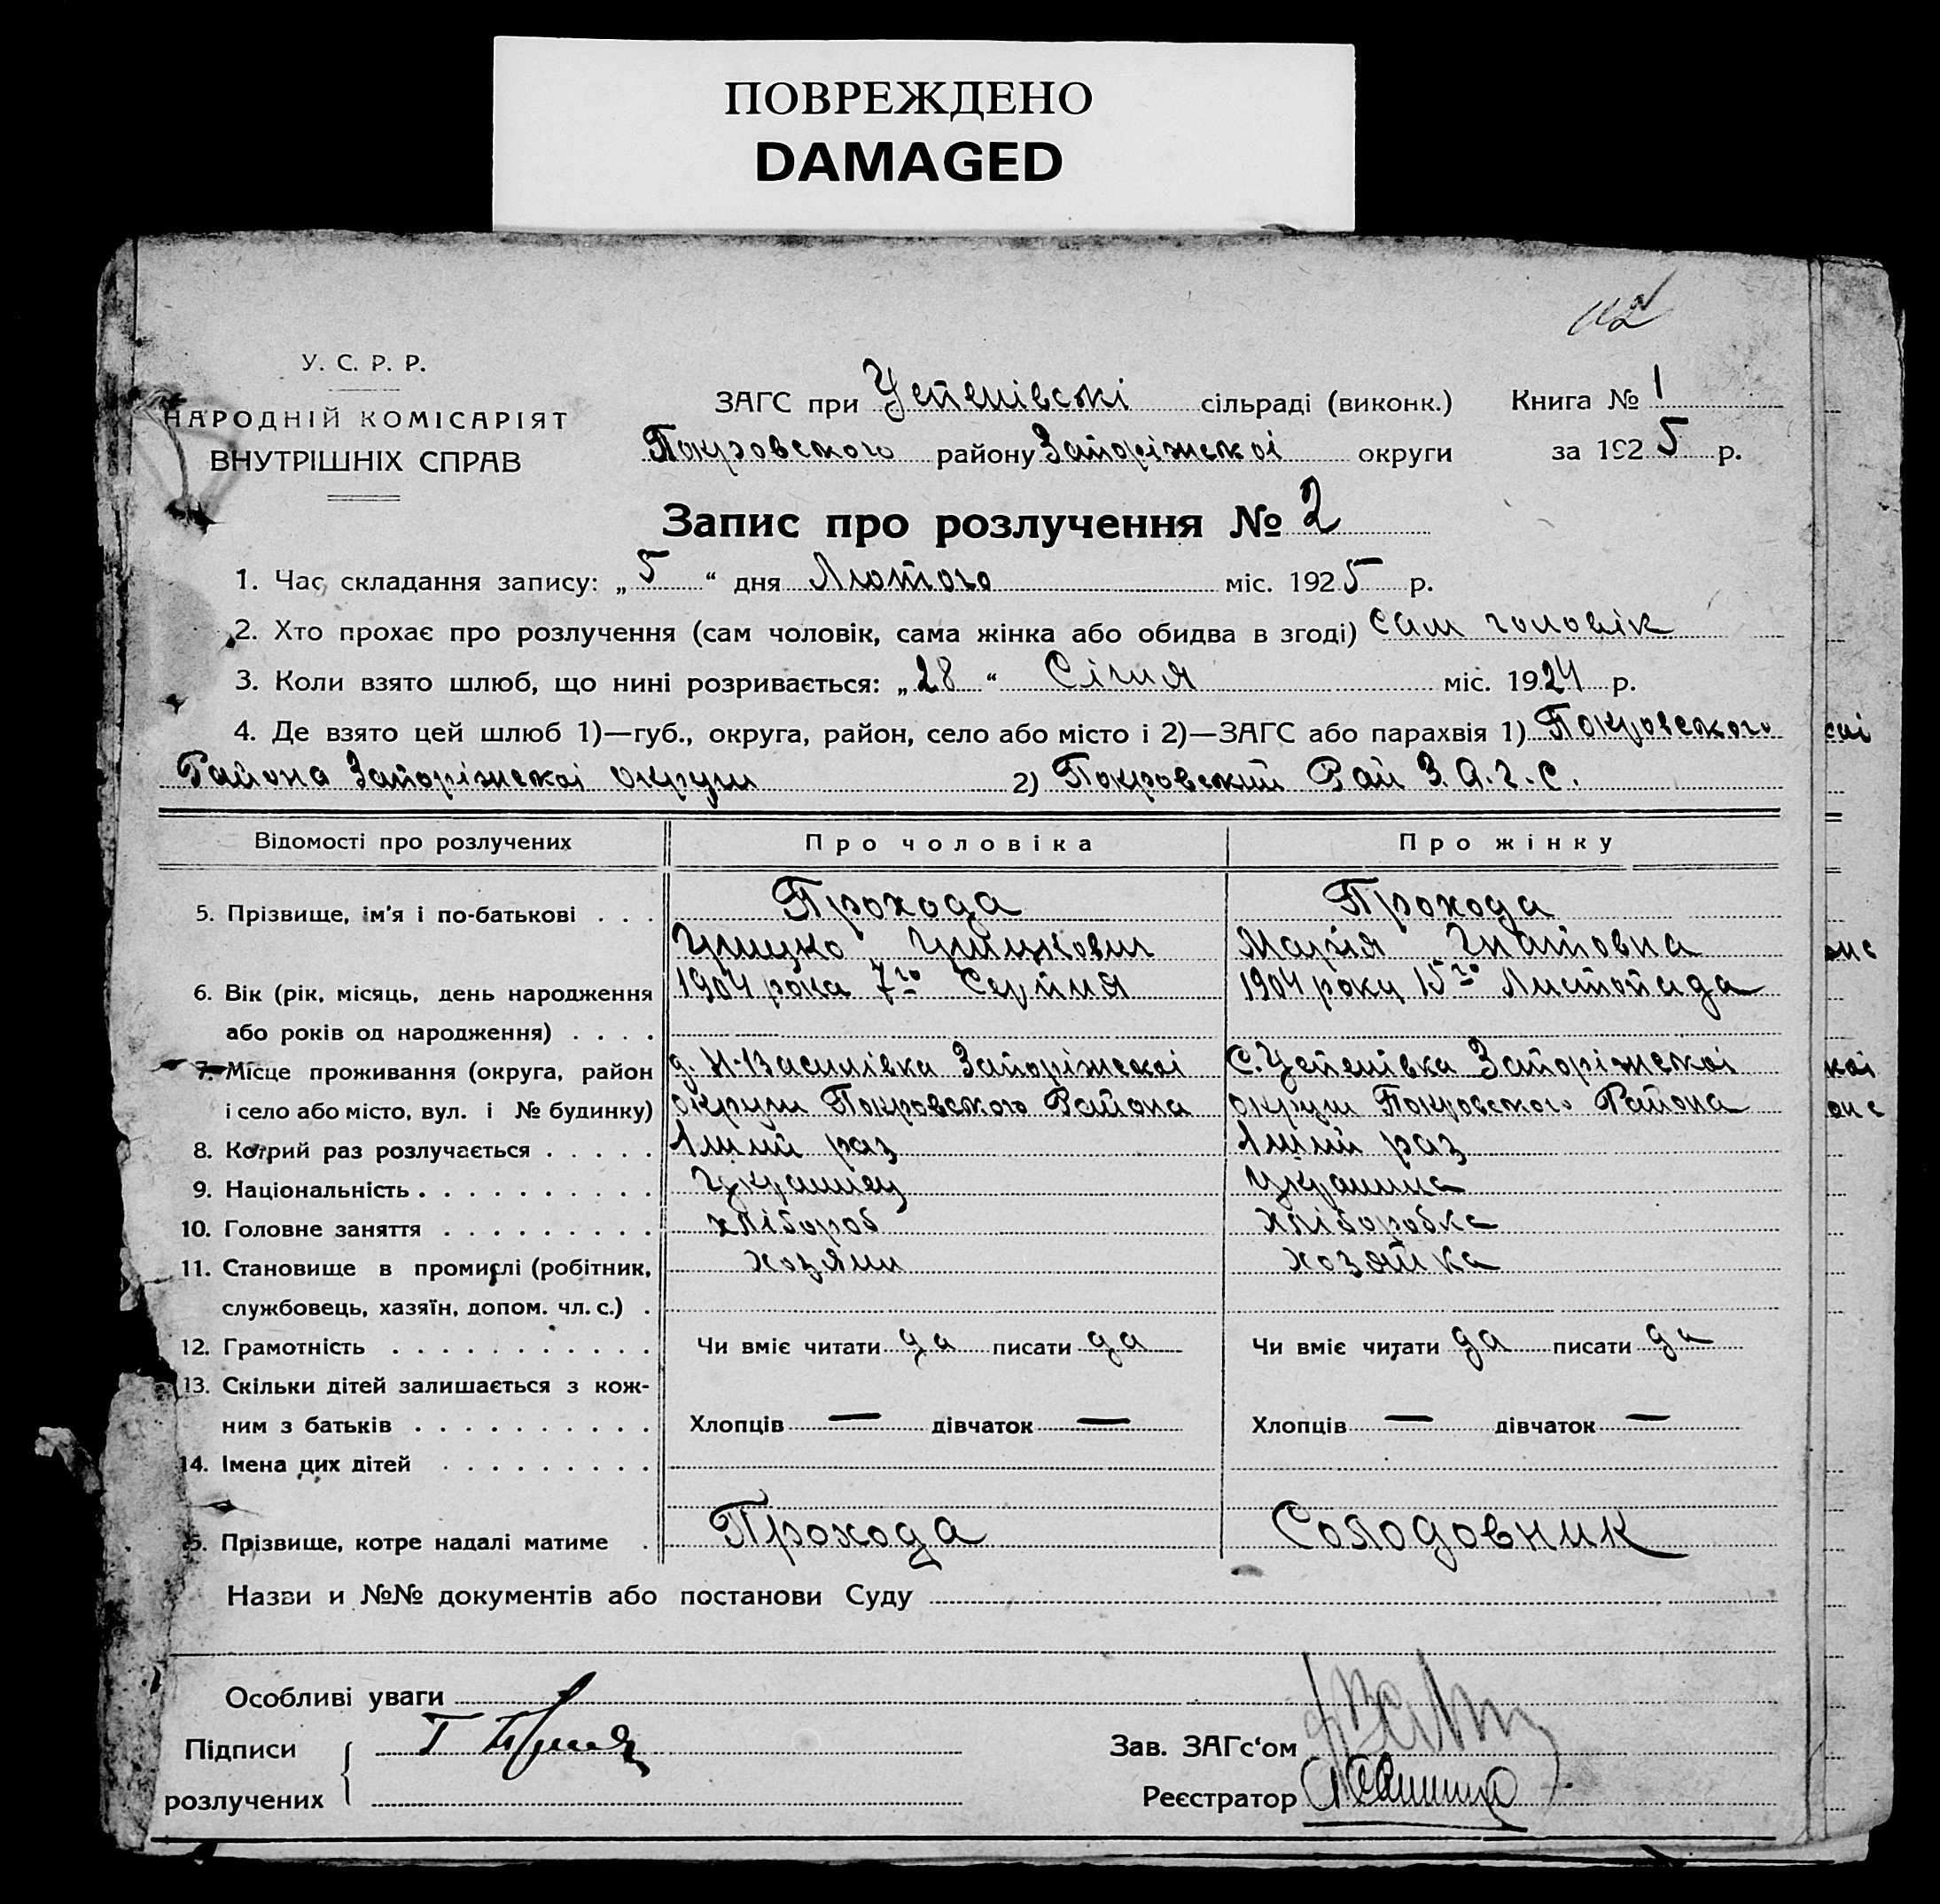 ПОВРЕЖДЕНО
DAMAGED
У. С. Р. Р.
НАРОДНІЙ КОМІСАРІЯТ
ВНУТРІШНІХ СПРАВ
ЗАГС при Успенівскі сільраді (виконк.) Книга № 1
Покровского району Запоріжскоі округи за 1925 р.
Запис про розлучення № 2
1. Час складання запису: „5“ дня Лютого міс. 1925 р.
2. Хто прохає про розлучення (сам чоловік, сама жінка або обидва в згоді) сам чоловік
3. Коли взято шлюб, що нині розривається: „28“ Січня міс. 1924 р.
4. Де взято цей шлюб 1)—губ., округа, район, село або місто і 2)—ЗАГС або парахвія 1) Покровского
Района Запоріжскоі округи 2) Покровский Рай З.А.Г.С.
Відомості про розлучених Про чоловіка Про жінку
5. Прізвище, ім'я і по-батькові . . . Прохода Прохода
Грицко Грицкович Марія Гнатовна
6. Вік (рік, місяць, день народження 1904 рока 7го Серпня 1904 року 15го Листопада
або років од народження) . . . .
7. Місце проживання (округа, район д. Н-Василівка Запоріжскоі С. Успенівка Запоріжскоі
і село або місто, вул. і № будинку) округи Покровского Района округи Покровского Района
8. Котрий раз розлучається . . . . . 1ший раз 1ший раз
9. Національність . . . . . . . . . . Украинец Украинка
10. Головне заняття . . . . . . . . . хлібороб хліборобка
11. Становище в промислі (робітник, хозяин хозяйка
службовець, хазяїн, допом. чл. с.) .
12. Грамотність . . . . . . . . . . . Чи вміє читати да писати да Чи вміє читати да писати да
13. Скільки дітей залишається з кож-
ним з батьків . . . . . . . . . . Хлопців — дівчаток — Хлопців — дівчаток —
14. Імена цих дітей . . . . . . . . .
15. Прізвище, котре надалі матиме . Прохода Солодовник
Назви и №№ документів або постанови Суду
Особливі уваги
Підписи
розлучених
Зав. ЗАГс‘ом
Реєстратор